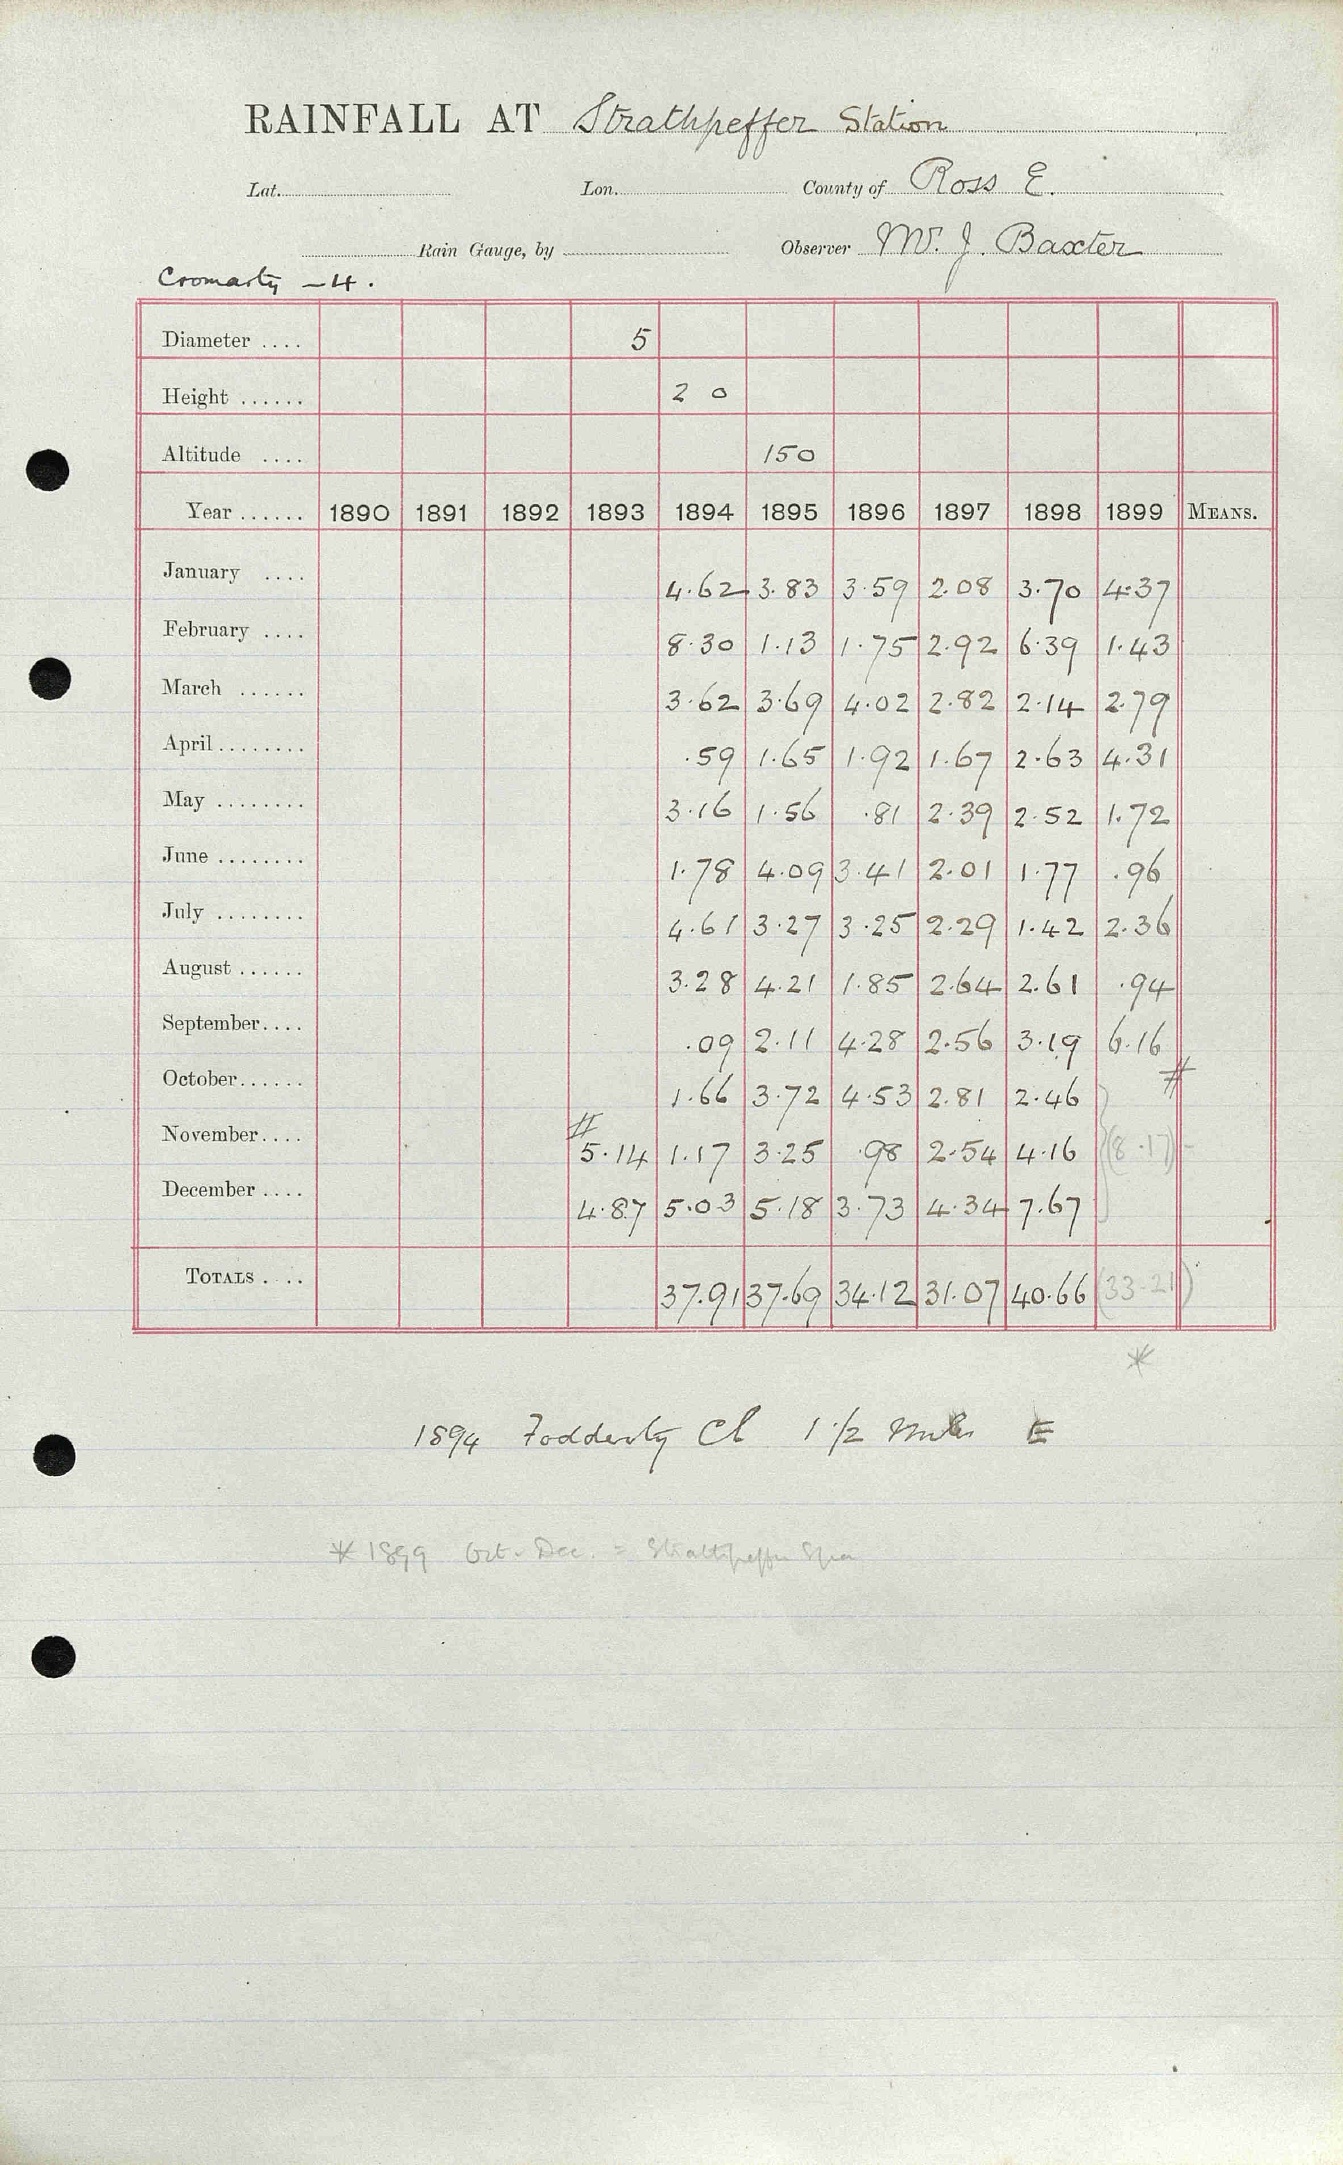 RAINFALL AT Strathpeffer Station
Lat. Lon. County of Ross E.
Rain Gauge, by Observer Mr. J. Baxter
Cromarty - 4.
Diameter .... 5
Height ...... 2 0
Altitude .... 150
Year ...... 1890 1891 1892 1893 1894 1895 1896 1897 1898 1899 MEANS.
January .... 4.62 3.83 3.59 2.08 3.70 4.37
February .... 8.30 1.13 1.75 2.92 6.39 1.43
March ...... 3.62 3.69 4.02 2.82 2.14 2.79
April ........ .59 1.65 1.92 1.67 2.63 4.31
May ........ 3.16 1.56 .81 2.39 2.52 1.72
June ........ 1.78 4.09 3.41 2.01 1.77 .96
July ........ 4.61 3.27 3.25 2.29 1.42 2.36
August ...... 3.28 4.21 1.85 2.64 2.61 .94
September.... .09 2.11 4.28 2.56 3.19 6.16
October...... 1.66 3.72 4.53 2.81 2.46 #
November.... # 5.14 1.17 3.25 .98 2.54 4.16 (8.17)
December .... 4.87 5.03 5.18 3.73 4.34 7.67
TOTALS .... 37.91 37.69 34.12 31.07 40.66 (33.21)
*
1894 Fodderty Cl 1 1/2 miles E
* 1899 Oct-Dec. = Strathpeffer Spa